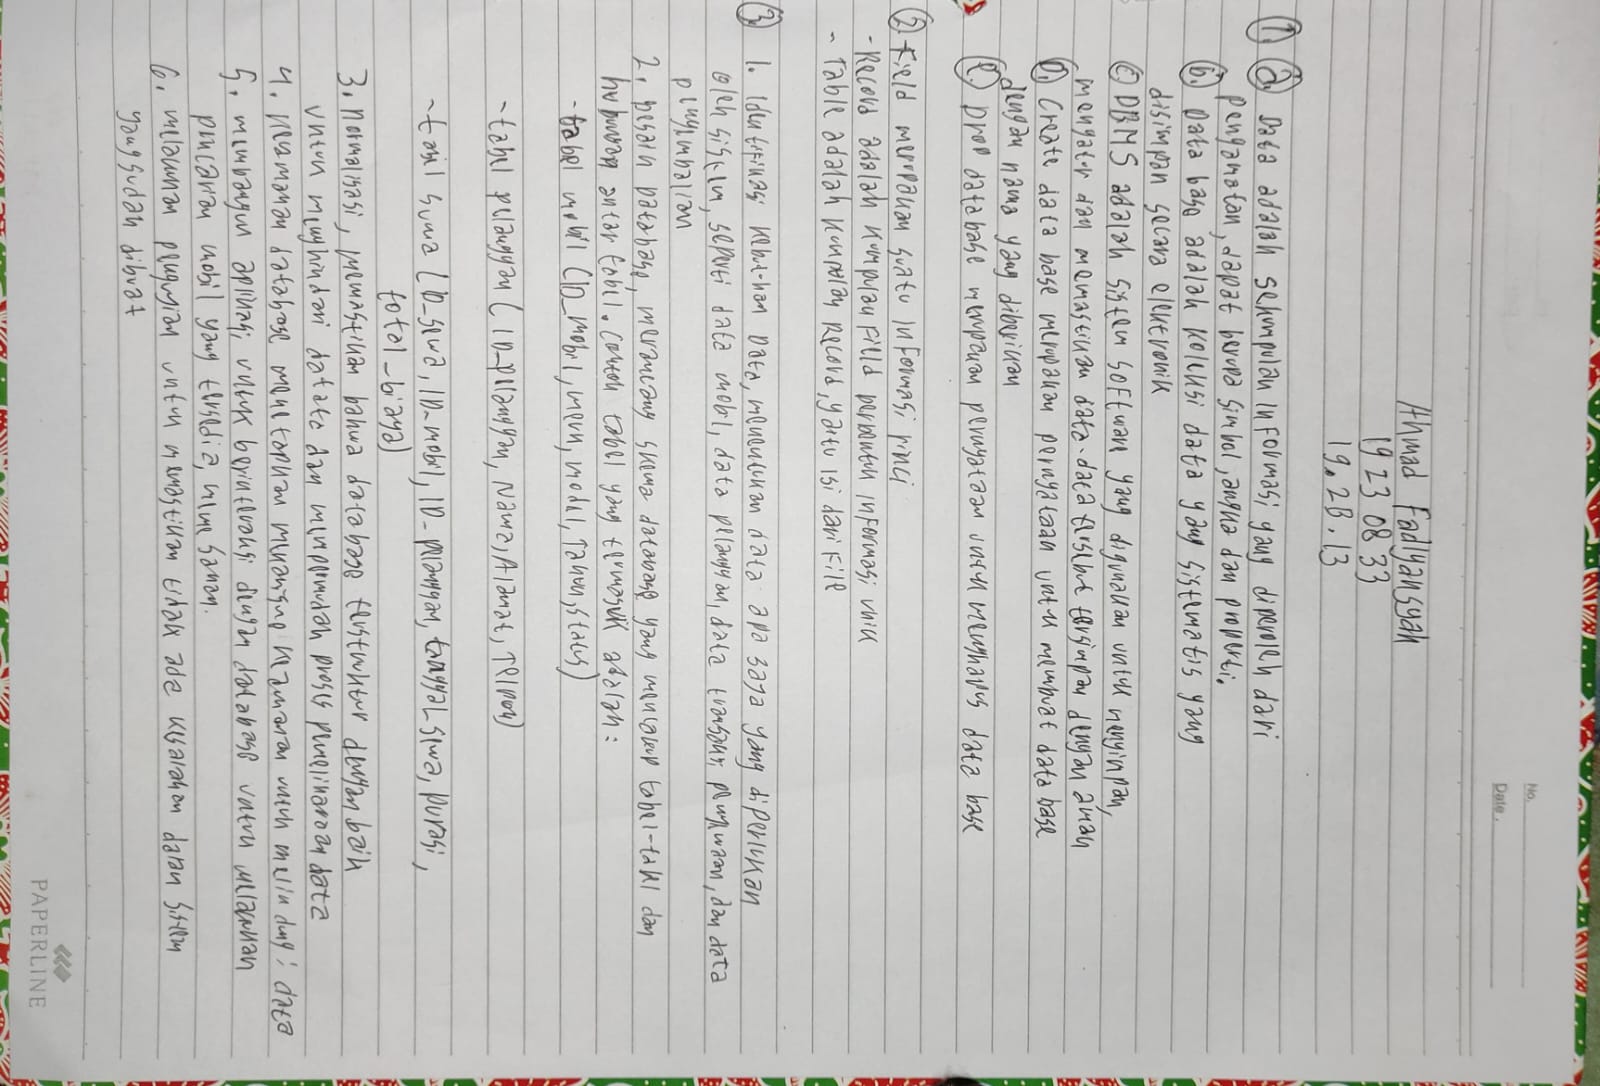 No.
Date.
Ahmad Fadlyansyah
19 23 08 33
19.2B.13
1. a. Data adalah sekumpulan informasi yang diperoleh dari
pengamatan, dapat berupa simbol, angka dan properti.
b. Data base adalah koleksi data yang sistematis yang
disimpan secara elektronik
c. DBMS adalah sistem software yang digunakan untuk menyimpan,
mengatur dan memastikan data-data tersebut tersimpan dengan aman
D. Create data base merupakan pernyataan untuk membuat data base
dengan nama yang diberikan
e. Drop database merupakan pernyataan untuk menghapus data base
2. Field merupakan suatu informasi rinci
- Record adalah kumpulan Filld berbentuk informasi unik
- Table adalah kumpulan Record, yaitu isi dari File
3. 1. Identifikasi kebutuhan Data, menentukan data apa saja yang diperlukan
oleh sistem, seperti data mobil, data pelanggan, data transaksi penyewaan, dan data
pengembalian
2. Desain Database, merancang skema database yang mencakup tabel-tabel dan
hubungan antar tabel. Contoh tabel yang termasuk adalah:
- tabel mobil (ID_mobil, merk, model, Tahun, status)
- tabel pelanggan (ID_pelanggan, Nama, Alamat, Telpon)
- tabel sewa (ID_sewa, ID-mobil, ID_pelanggan, tanggal_sewa, Durasi,
total_biaya)
3. Normalisasi, memastikan bahwa database terstruktur dengan baik
untuk menghindari data dan mempermudah proses pemeliharaan data
4. Keamanan database menetapkan keamanan untuk melindungi data
5. membangun aplikasi untuk berinteraksi dengan database untuk melakukan
pencarian mobil yang tersedia,
6. melakukan pengujian untuk memastikan tidak ada kesalahan dalam sistem
yang sudah dibuat
PAPERLINE